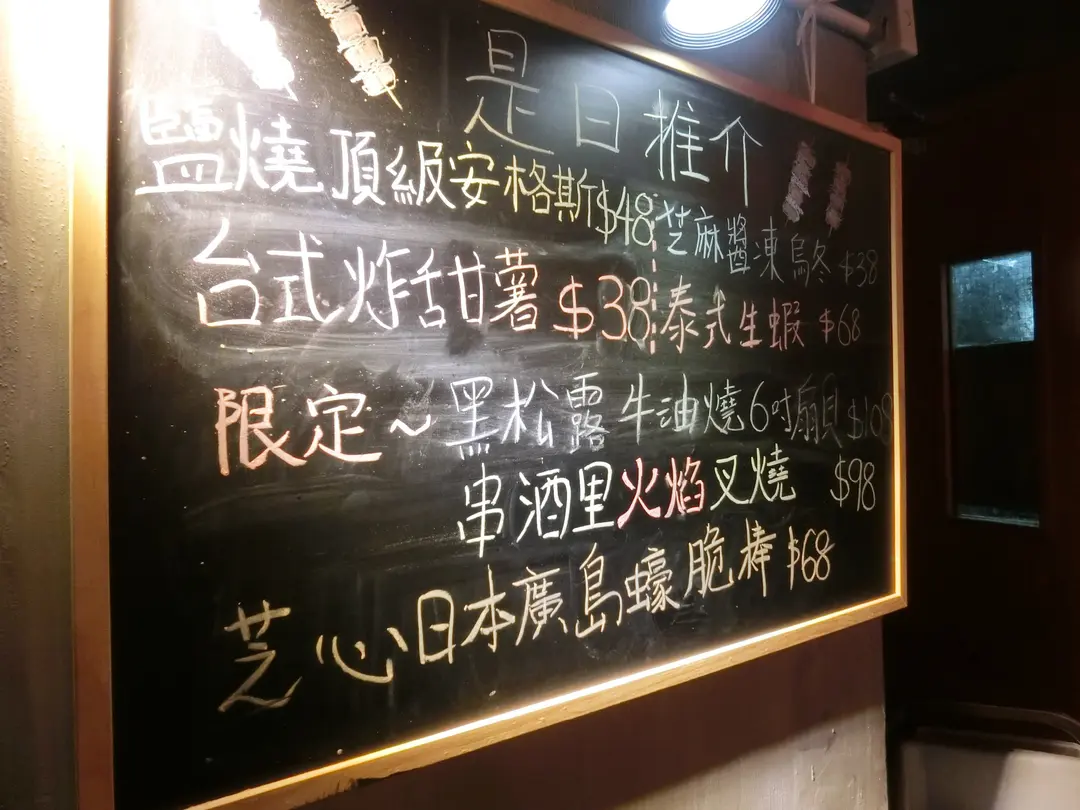 是日推介
鹽燒頂級安格斯$48
芝麻醬凍烏冬 $38
台式炸甜薯 $38
泰式生蝦 $68
限定~黑松露牛油燒6吋扇貝$108
串酒里火焰叉燒 $98
芝心日本廣島蠔脆棒 $68